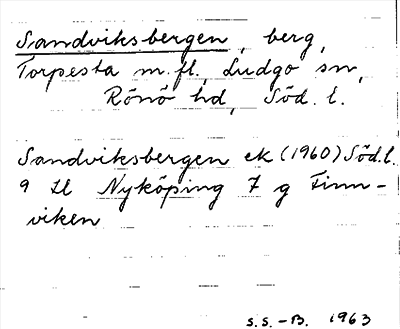 Sandviksbergen, berg,
Torpesta m.fl., Ludgo sn,
Rönö hd, Söd. l.
Sandviksbergen ek (1960) Söd.l.
9 Nyköping 7 g Finn-
viken
S.S.-B. 1963